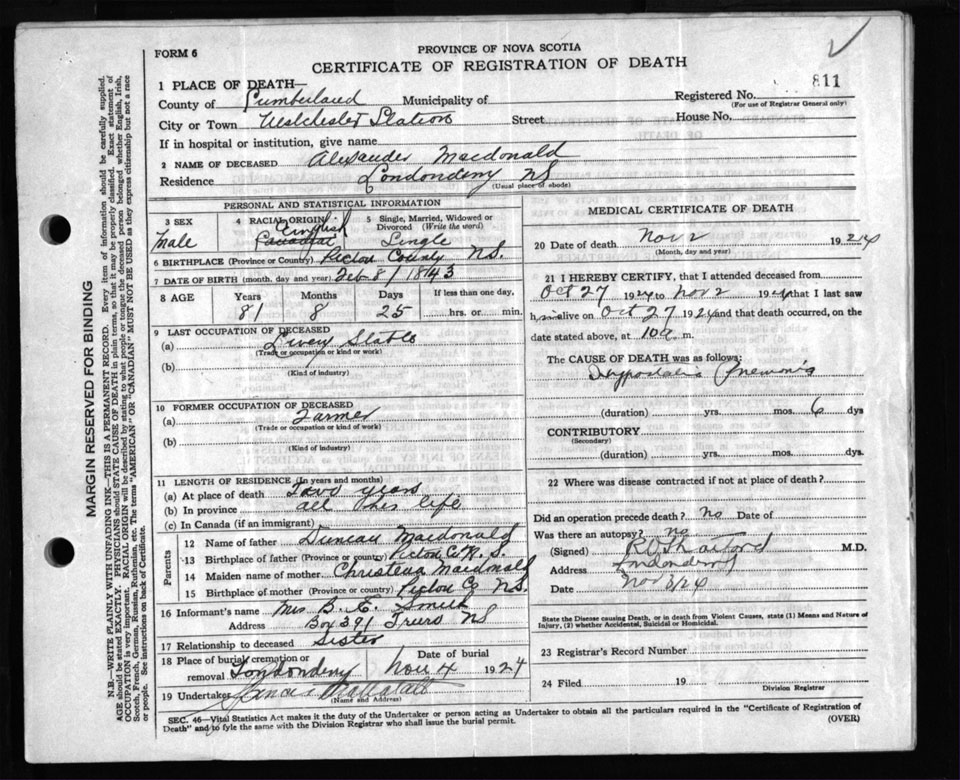 PROVINCE OF NOVA SCOTIA
FORM 6
CERTIFICATE OF REGISTRATION OF DEATH
1 PLACE OF DEATH—
811
Registered No.
(For use of Registrar General only)
County of Cumberland Municipality of
City or Town Westchester Station Street House No.
If in hospital or institution, give name
2 NAME OF DECEASED Alexander Macdonald
Residence Londonderry NS
(Usual place of abode)
PERSONAL AND STATISTICAL INFORMATION
3 SEX Male
4 RACIAL ORIGIN English Canadian
5 Single, Married, Widowed or Divorced (Write the word) Single
6 BIRTHPLACE (Province or County) Pictou County NS.
7 DATE OF BIRTH (month, day and year) Feb 8/1843
8 AGE Years Months Days If less than one day,
81 8 25 hrs. or min.
9 LAST OCCUPATION OF DECEASED
(a) Livery Stable
(Trade or occupation or kind of work)
(b)
(Kind of industry)
10 FORMER OCCUPATION OF DECEASED
(a) Farmer
(Trade or occupation or kind of work)
(b)
(Kind of industry)
11 LENGTH OF RESIDENCE (In years and months)
(a) At place of death Two years
(b) In province all his life
(c) In Canada (if an immigrant)
Parents
12 Name of father Duncan Macdonald
13 Birthplace of father (Province or country) Pictou Co N.S.
14 Maiden name of mother Christena Macdonald
15 Birthplace of mother (Province or country) Pictou Co NS.
16 Informant's name Mrs B. E. Smith
Address Box 391 Truro NS
17 Relationship to deceased Sister
18 Place of burial, cremation or removal Londonderry Date of burial Nov 4 1924
19 Undertaker
(Name and Address)
MEDICAL CERTIFICATE OF DEATH
20 Date of death Nov 2 1924
(Month, day and year)
21 I HEREBY CERTIFY, that I attended deceased from
Oct 27 1924 to Nov 2 1924 that I last saw
him alive on Oct 27 1924 and that death occurred, on
date stated above, at 10 a. m.
The CAUSE OF DEATH was as follows:
Hypostatic Pnemonia
(duration) yrs. mos. 6 dys
CONTRIBUTORY
(Secondary)
(duration) yrs. mos. dys.
22 Where was disease contracted if not at place of death?
Did an operation precede death? No Date of
Was there an autopsy? no
(Signed) M.D.
Address Londonderry
Date Nov 3/24
State the Disease causing Death, or in death from Violent Causes, state (1) Means and Nature of
Injury, (2) whether Accidental, Suicidal or Homicidal.
23 Registrar's Record Number
24 Filed 19
Division Registrar
SEC. 46—Vital Statistics Act makes it the duty of the Undertaker or person acting as Undertaker to obtain all the particulars required in the "Certificate of Registration of
Death" and to fyle the same with the Division Registrar who shall issue the burial permit. (OVER)
MARGIN RESERVED FOR BINDING
N.B.—WRITE PLAINLY WITH UNFADING INK—THIS IS A PERMANENT RECORD. Every item of information should be carefully supplied.
AGE should be stated EXACTLY. PHYSICIANS should STATE CAUSE OF DEATH in plain terms, so that it may be properly classified. Exact statement of
OCCUPATION is very important. RACIAL ORIGIN will be described by stating to what people or tongue the deceased person belonged whether English, Irish,
Scotch, French, German, Russian, Ruthenian, etc. The terms "AMERICAN" OR "CANADIAN" MUST NOT BE USED as they express citizenship but not a race
or people. See instructions on back of Certificate.